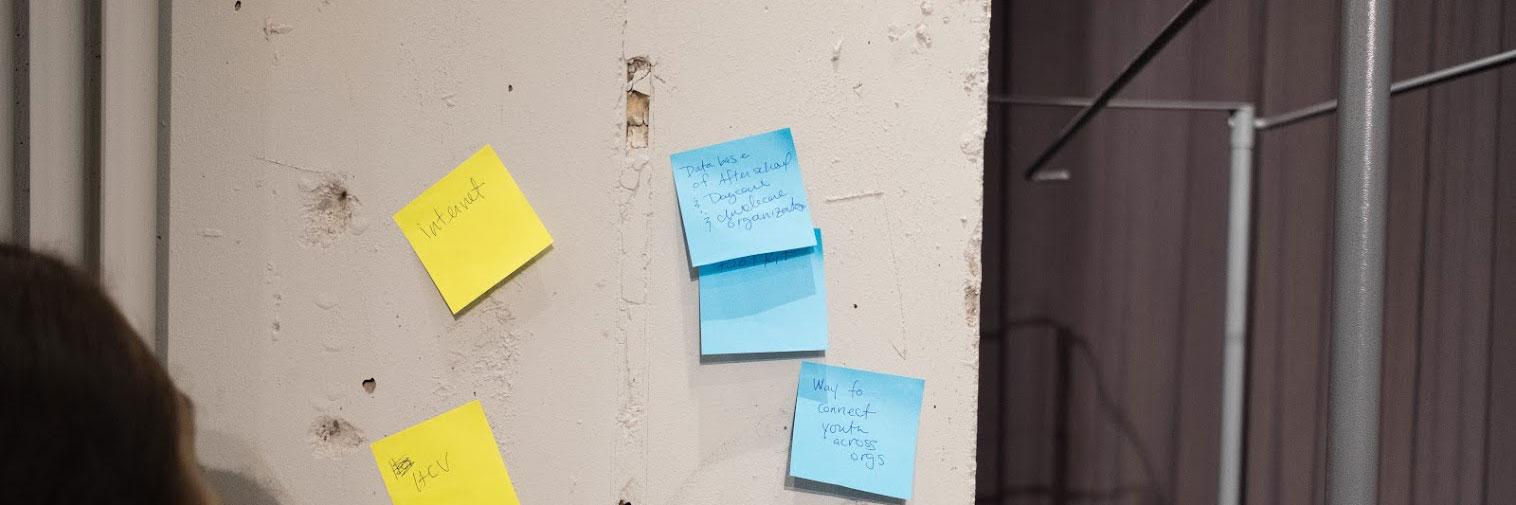 internet
HCV
Database
of Afterschool
& Daycare
& childcare
organizations
Way to
connect
youth
across
orgs